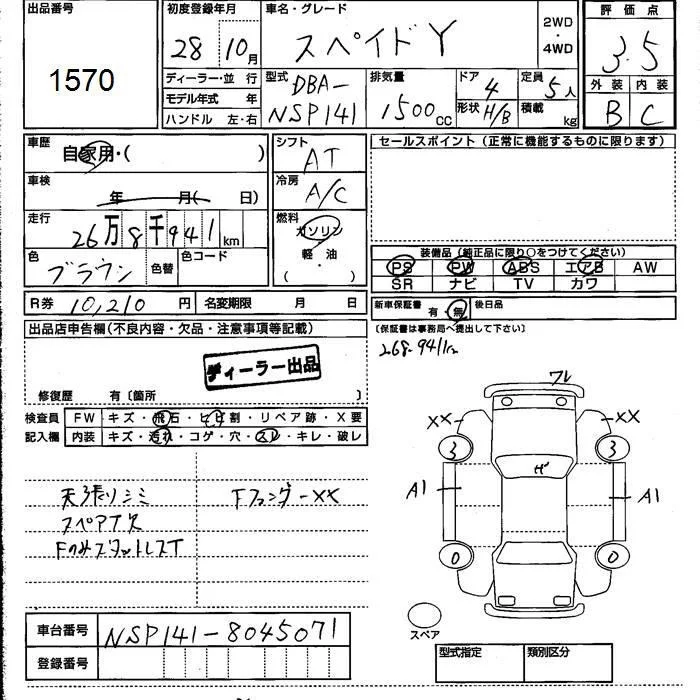 出品番号
1570
初度登録年月
28 10月
車名・グレード
スペイド Y
2WD
・
4WD
評価点
3.5
外装 内装
B C
ディーラー・並 行
モデル年式 年
ハンドル 左・右
型式
DBA-
NSP141
排気量
1500cc
ドア
4
形状 H/B
定員
5人
積載
kg
車歴
自家用・( )
シフト
AT
セールスポイント(正常に機能するものに限ります)
車検
年 月( 日)
冷房
A/C
走行
26万8千941km
燃料
ガソリン
軽・油
( )
色
ブラウン
色替
色コード
装備品(純正品に限り○をつけてください)
PS PW ABS エアB AW
SR ナビ TV カワ
R券 10,210円 名変期限 月 日
新車保証書
有・無
後日品
(保証書は事務局へ提出して下さい)
出品店申告欄(不良内容・欠品・注意事項等記載)
268-941km
ディーラー出品
修復歴 有〔箇所 〕
検査員
記入欄
FW キズ・飛石・ヒビ割・リペア跡・X要
内装 キズ・汚れ・コゲ・穴・スレ・キレ・破レ
フレ
XX XX
3 3
A1 A1
0 0
スペア
天張りシミ
Fフェンダー XX
スペアT欠
FのみスタットレスT
車台番号 NSP141-8045071
登録番号
型式指定 類別区分